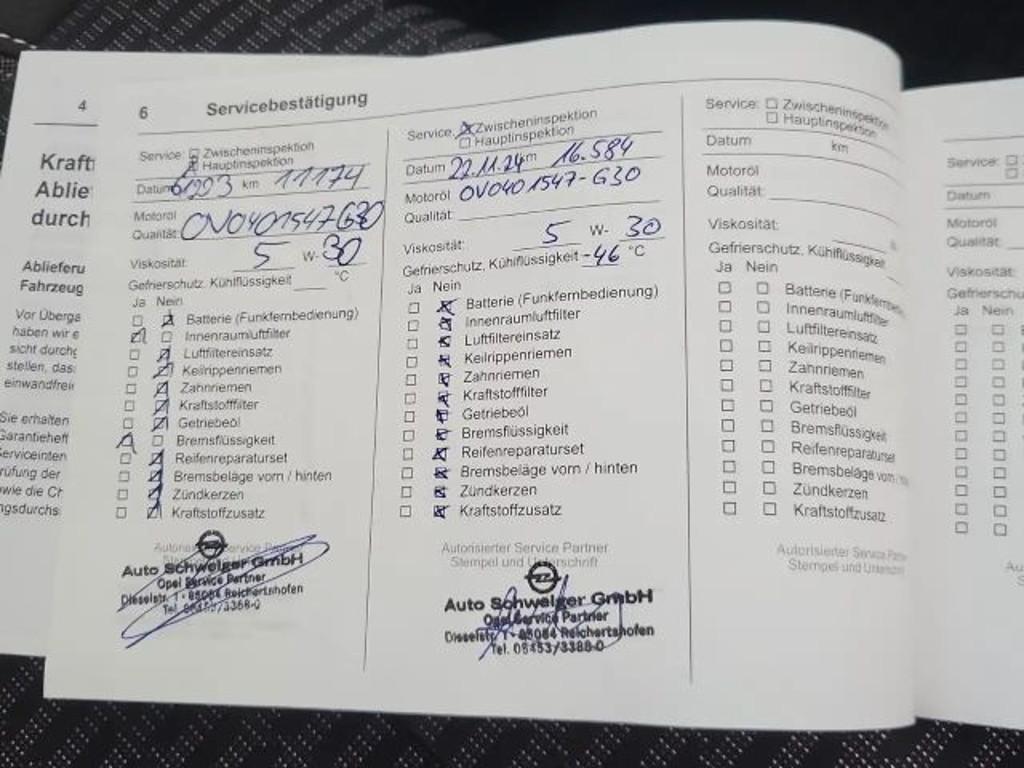 4
Kraft
Ablie
durch
Ablieferu
Fahrzeug
Vor Überga
haben wir e
sicht durchg
stellen, das
einwandfrei
Sie erhalten
Garantieheft
Serviceinten
rüfung der
wie die Ch
ngsdurchs
6 Servicebestätigung
Service: Zwischeninspektion
Hauptinspektion
Datum km 11174
Motoröl
Qualität: OV0401547G30
Viskosität: 5 W- 30
Gefrierschutz, Kühlflüssigkeit °C
Ja Nein
Batterie (Funkfernbedienung)
Innenraumluftfilter
Luftfiltereinsatz
Keilrippenriemen
Zahnriemen
Kraftstofffilter
Getriebeöl
Bremsflüssigkeit
Reifenreparaturset
Bremsbeläge vorn / hinten
Zündkerzen
Kraftstoffzusatz
Auto Schweiger GmbH
Opel Service Partner
Dieselstr. 1 · 85084 Reichertshofen
Tel. 08453/3388-0
Service: Zwischeninspektion
Hauptinspektion
Datum 22.11.24 km 16.584
Motoröl OV0401547-G30
Qualität:
Viskosität: 5 W- 30
Gefrierschutz, Kühlflüssigkeit -46 °C
Ja Nein
Batterie (Funkfernbedienung)
Innenraumluftfilter
Luftfiltereinsatz
Keilrippenriemen
Zahnriemen
Kraftstofffilter
Getriebeöl
Bremsflüssigkeit
Reifenreparaturset
Bremsbeläge vorn / hinten
Zündkerzen
Kraftstoffzusatz
Autorisierter Service Partner
Stempel und Unterschrift
Auto Schweiger GmbH
Opel Service Partner
Dieselstr. 1 · 85084 Reichertshofen
Tel. 08453/3388-0
Service: Zwischeninspektion
Hauptinspektion
Datum km
Motoröl
Qualität:
Viskosität:
Gefrierschutz, Kühlflüssigkeit
Ja Nein
Batterie (Funkfernbe
Innenraumluftfilter
Luftfiltereinsatz
Keilrippenriemen
Zahnriemen
Kraftstofffilter
Getriebeöl
Bremsflüssigkeit
Reifenreparaturset
Bremsbeläge vorn / hin
Zündkerzen
Kraftstoffzusatz
Autorisierter Service Partn
Stempel und Unterschrift
Service:
Datum
Motoröl
Qualität:
Viskosität:
Gefrierschu
Ja Nein
Au
S